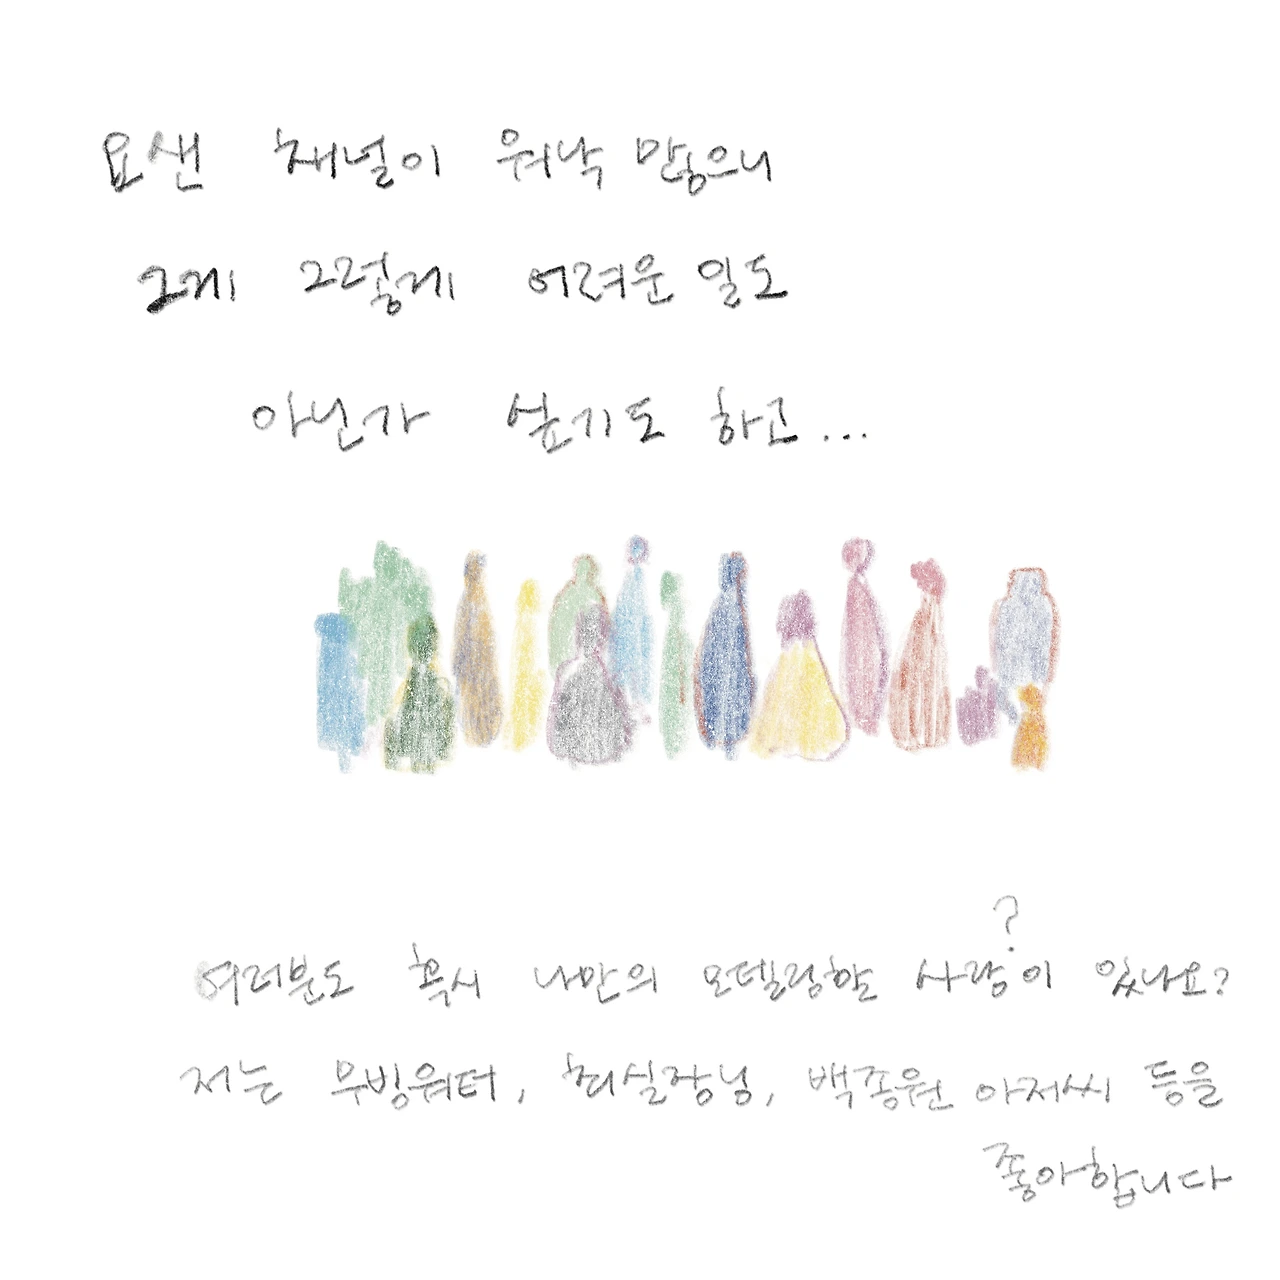 요샌 채널이 워낙 많으니
그게 그렇게 어려운 일도
아닌가 싶기도 하고...
?
여러분도 혹시 나만의 모델링할 사람이 있나요?
저는 무빙워터, 최실장님, 백종원 아저씨 등을
좋아합니다